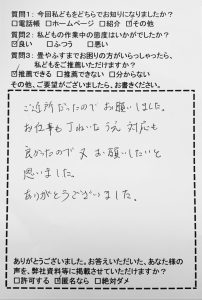 質問1：今回私どもをどちらでお知りになりましたか？
□電話帳　□ホームページ　□紹介　☑その他
質問2：私どもの作業中の態度はいかがでしたか？
☑良い　□ふつう　□悪い
質問3：畳やふすまでお困りの方がいらっしゃったら、
私どもをご推薦いただけますか？
☑推薦できる　□推薦できない　□分からない
その他、ご要望がございましたら、お書きください。
ご近所だったのでお願いしました。
お仕事も丁ねいなうえ対応も
良かったので又お願いしたいと
思いました。
ありがとうございました。
ありがとうございました。お答えいただいた、あなた様の
声を、弊社資料等に掲載させていただけますか？
□許可する　☑匿名なら　□絶対ダメ